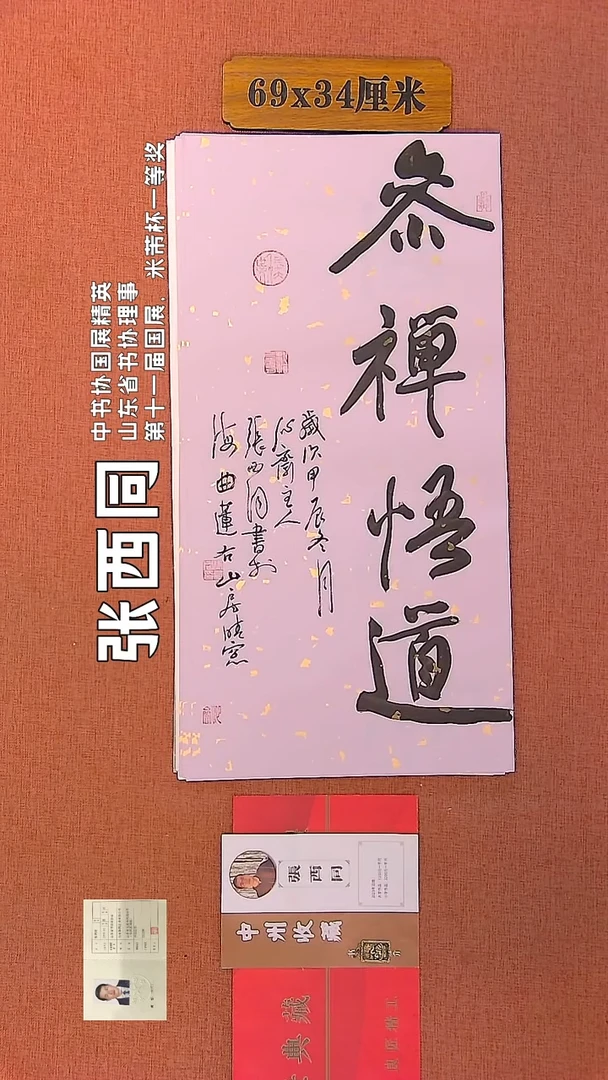 69x34厘米
參禪悟道
歲次甲辰冬月
沁齋主人
張西同書於
海曲蓮右山房晴窓
张西同
中书协国展精英
山东省书协理事
第十一届国展、米芾杯一等奖
張西同
中州收藏
典藏